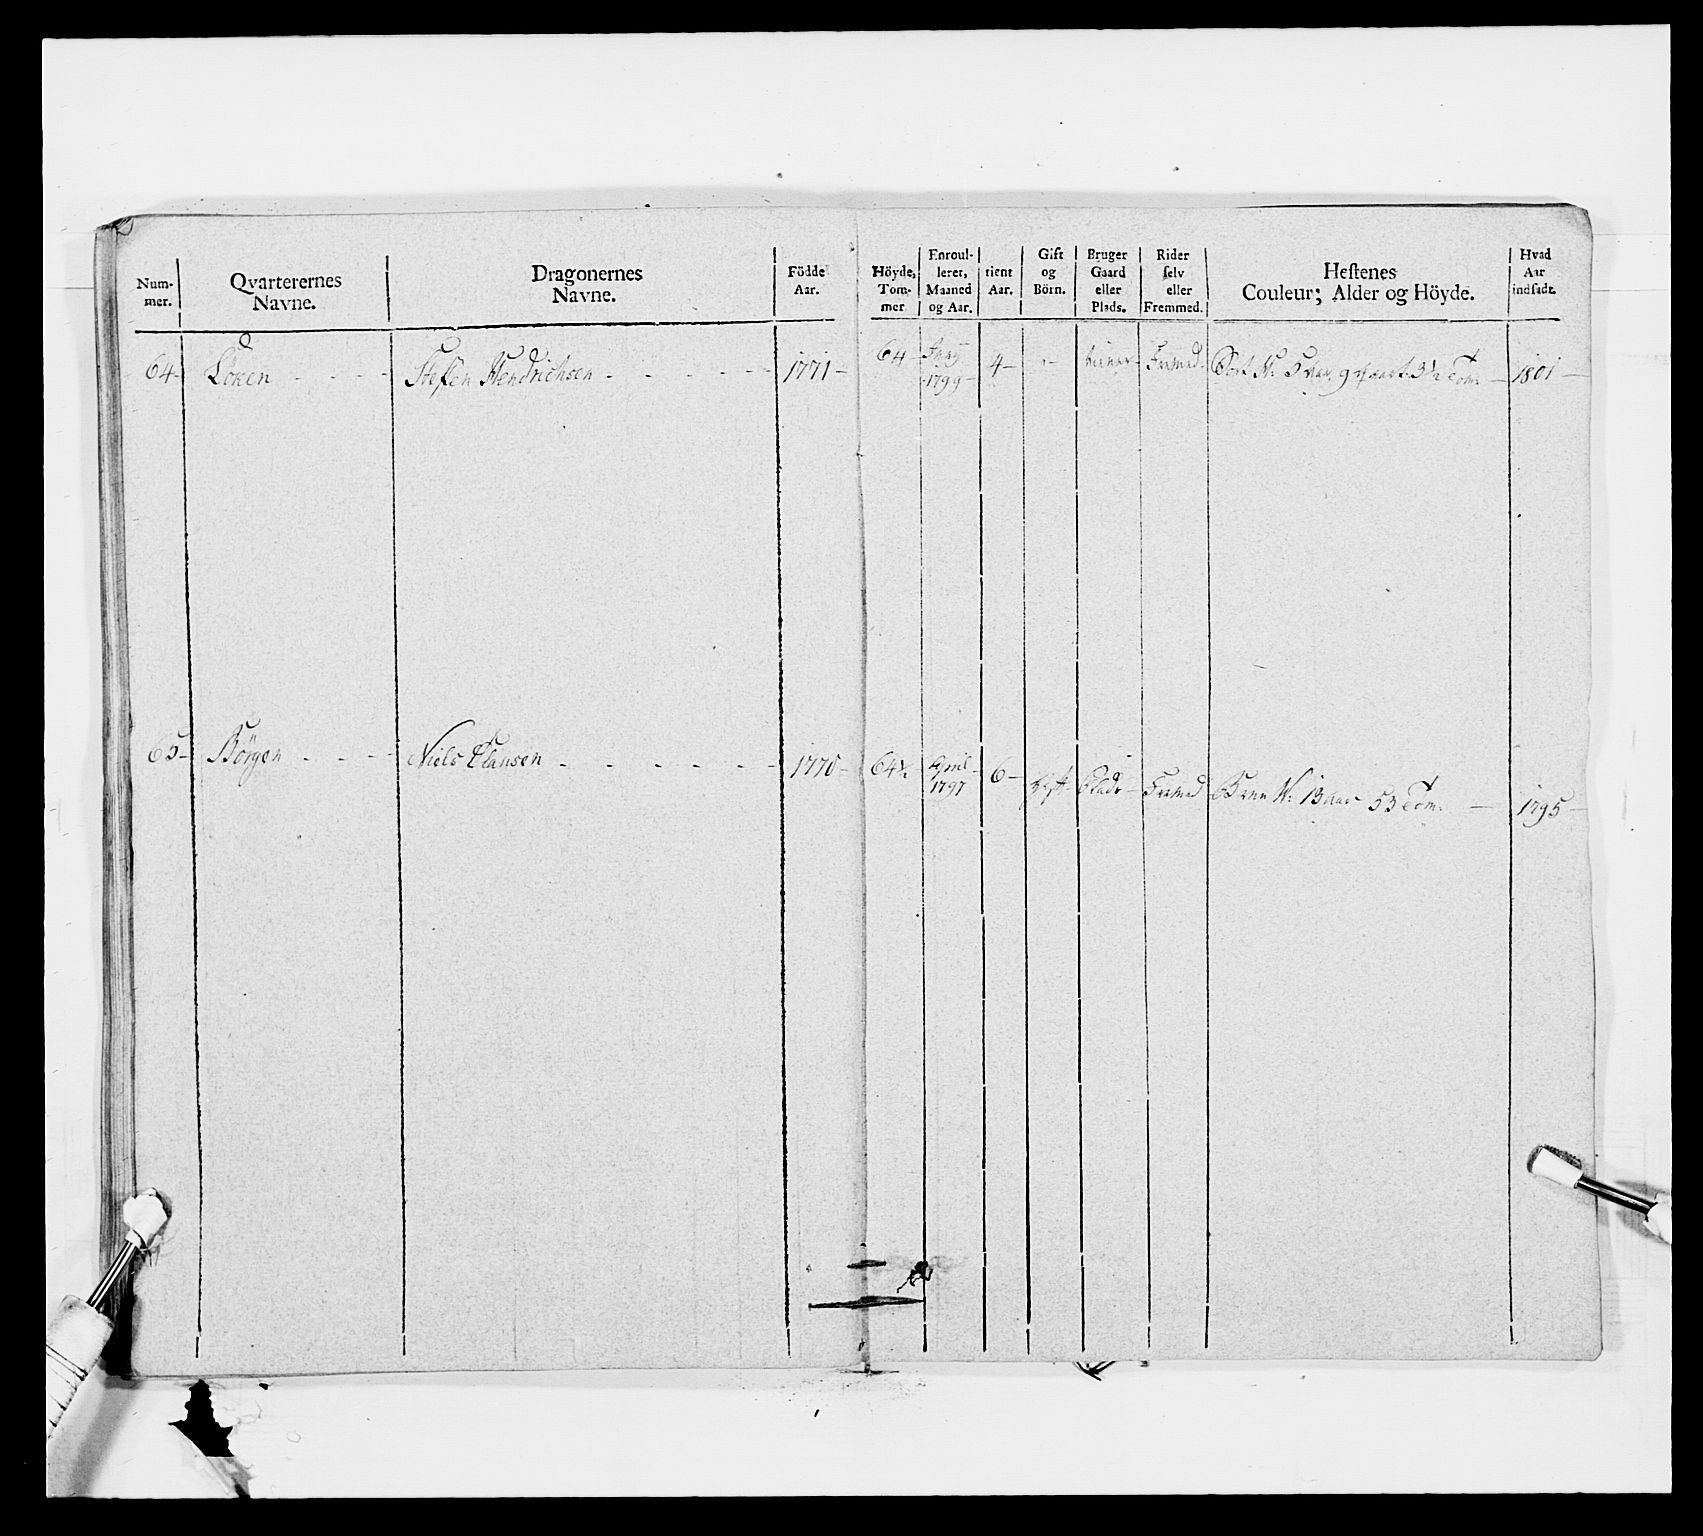 Num-
mer.
Qvarterernes
Navne.
Dragonernes
Navne.
Födde
Aar.
Höyde,
Tom-
mer
Enroul-
leret,
Maaned
og Aar.
tient
Aar.
Gift
og
Börn.
Bruger
Gaard
eller
Plads.
Rider
selv
eller
Fremmed.
Hestenes
Couleur; Alder og Höyde.
Hvad
Aar
indsadt.
64 - Löken - - - -
Steffen Hendrichsen - - - - - -
1771 -
64 -
1799 -
4 -
- -
Fremed -
Sort
1801 -
65 - Börgen - - - -
Niels Clausen - - - - - -
1770 -
64½
April
1797
6 -
Gift -
Plads -
Fremed
Brun W: 13 Aar 53 Tom: -
1795 -